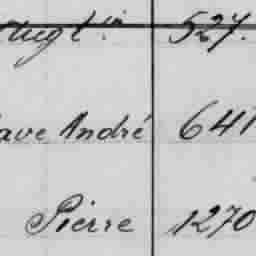 527.
ave André 641
Pierre 1270